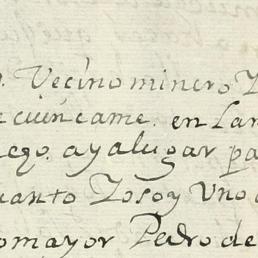 Vecino minero
cuencame en la
ayalugar pa
uanto Yo soy uno
mayor Pedro de